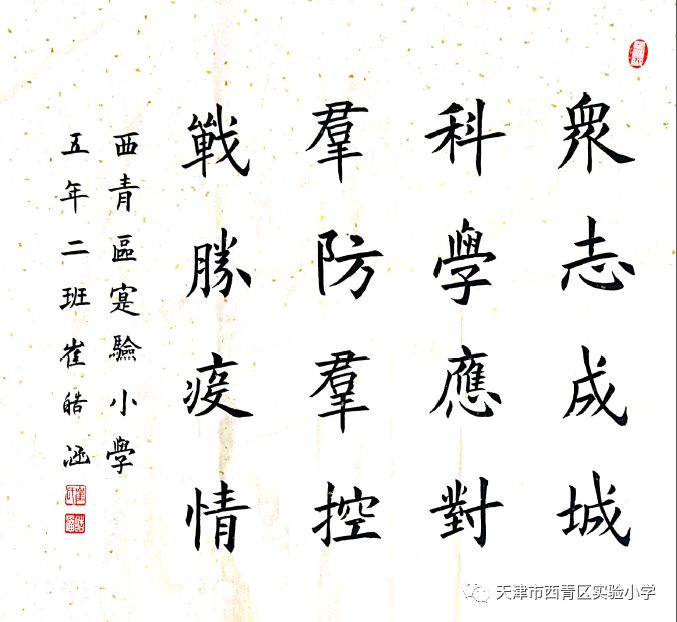 眾志成城
科學應對
羣防羣控
戰勝疫情
西青區寔驗小學
五年二班崔皓涵
天津市西青区实验小学